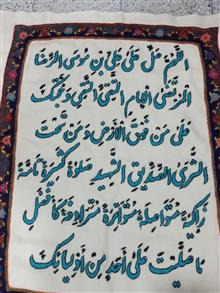 اللهم صل على علی بن موسی الرضا
المرتضی الامام التقی النقی و حجتک
علی من فوق الارض و من تحت
الثری الصدیق الشهید صلوة کثیرة تامة
زاکیة متواصلة متواترة مترادفة کافضل
ما صلیت علی احد من اولیائک